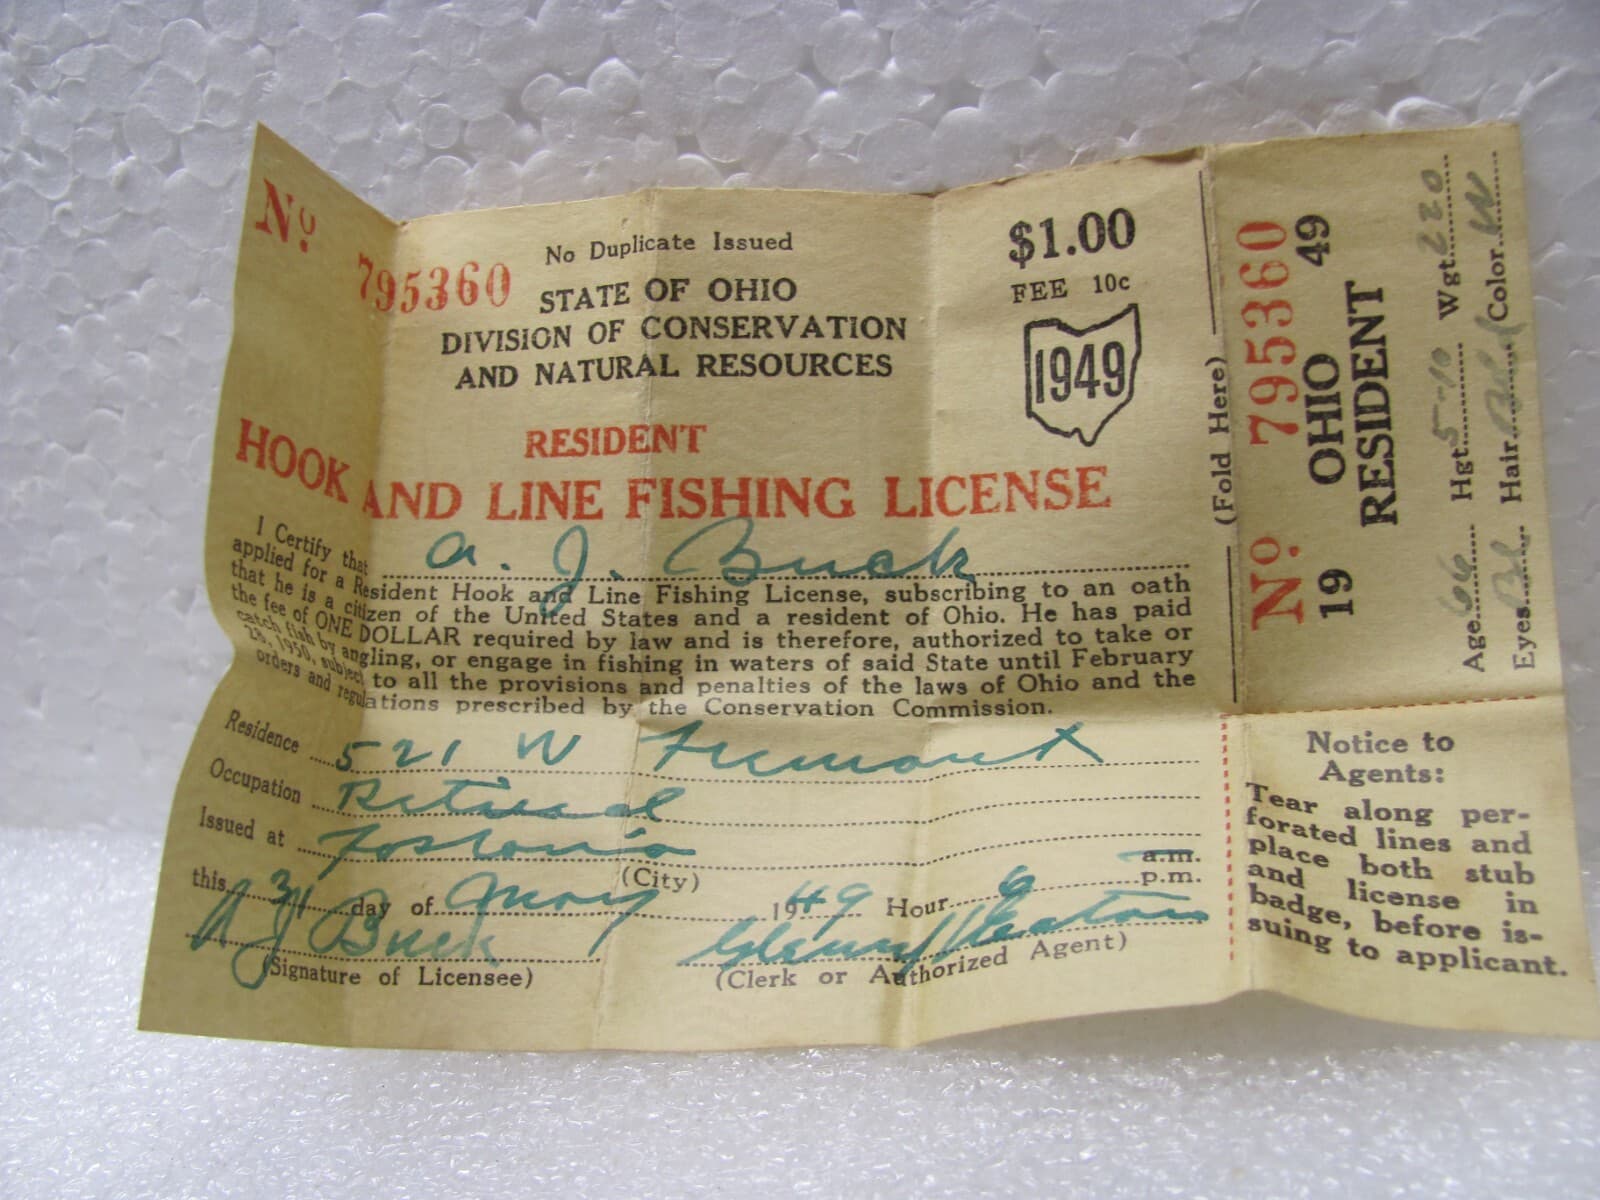 No. 795360
No Duplicate Issued
STATE OF OHIO
DIVISION OF CONSERVATION
AND NATURAL RESOURCES
$1.00
FEE 10c
1949
RESIDENT
HOOK AND LINE FISHING LICENSE
I Certify that A. J. Buck
applied for a Resident Hook and Line Fishing License, subscribing to an oath
that he is a citizen of the United States and a resident of Ohio. He has paid
the fee of ONE DOLLAR required by law and is therefore, authorized to take or
catch fish by angling, or engage in fishing in waters of said State until February
28, 1950, subject to all the provisions and penalties of the laws of Ohio and the
orders and regulations prescribed by the Conservation Commission.
Residence 521 W Fremont
Occupation Retired
Issued at Fostoria
(City)
a.m.
this 31 day of May 1949 Hour 6 p.m.
A J Buck
(Signature of Licensee)
(Clerk or Authorized Agent)
(Fold Here)
No. 795360
19 OHIO 49
RESIDENT
Age 66 Hgt 5-10 Wgt 220
Eyes Bl Hair Color W
Notice to
Agents:
Tear along per-
forated lines and
place both stub
and license in
badge, before is-
suing to applicant.